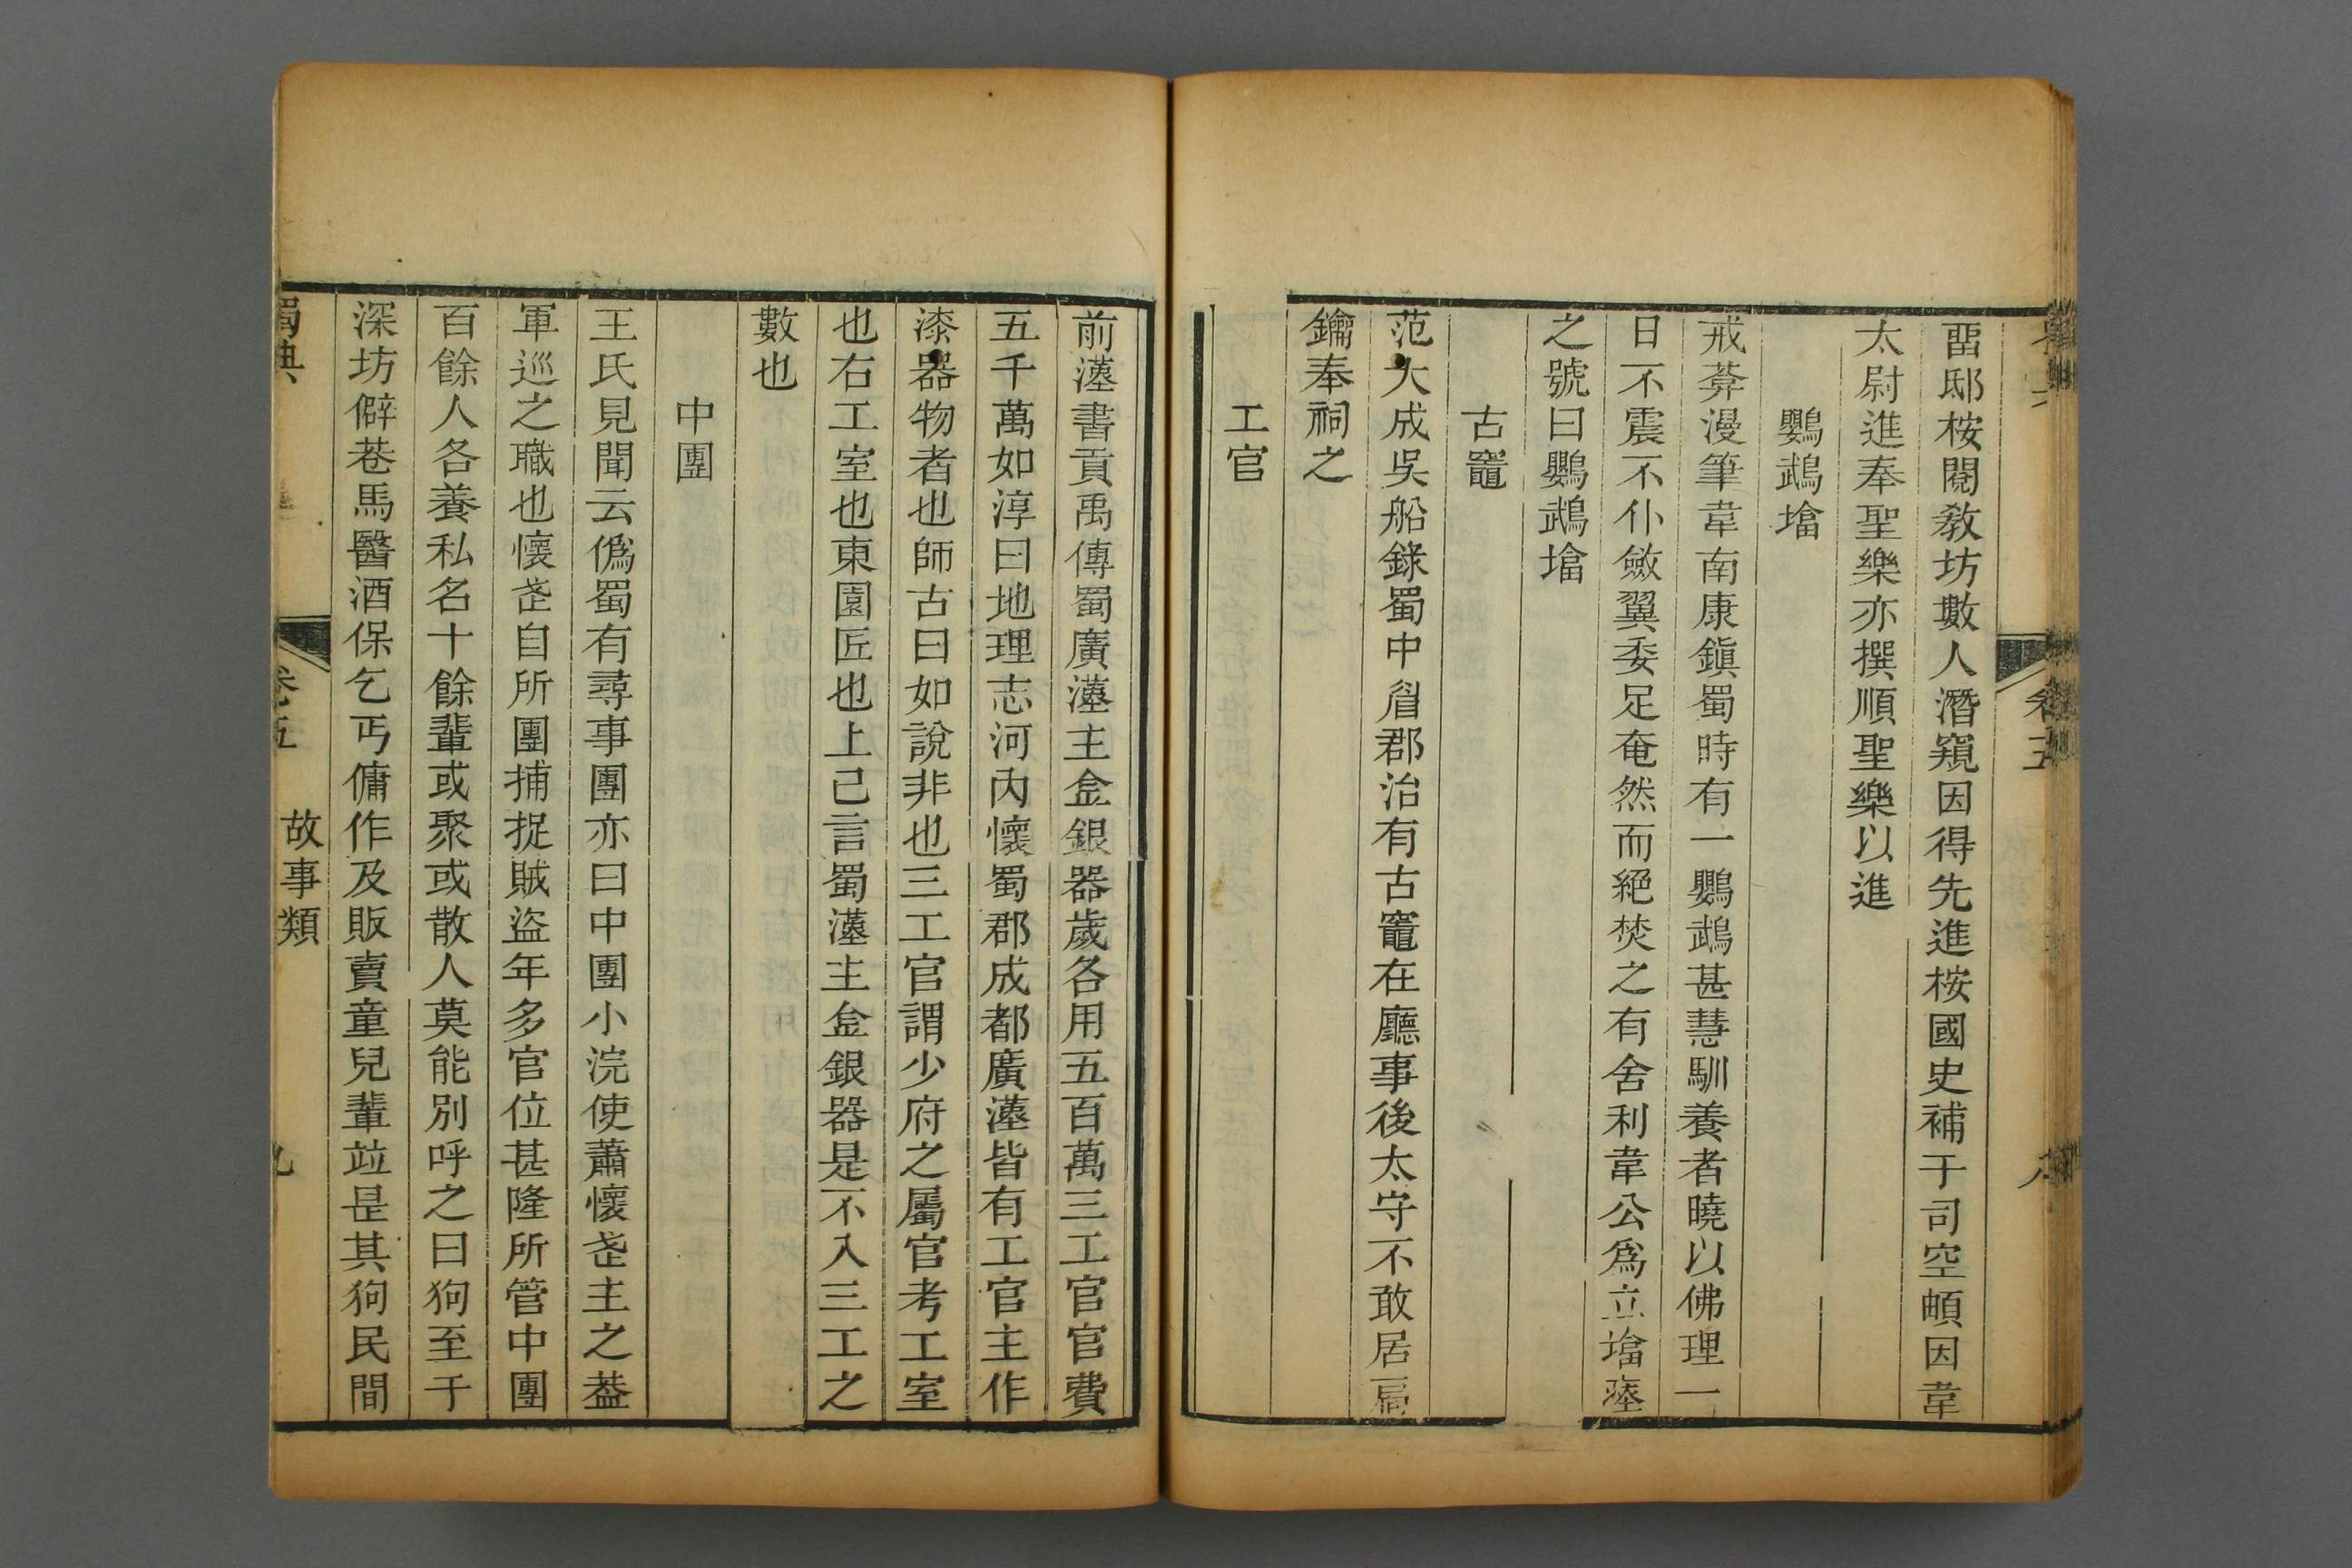 畱邸桉閱敎坊數人潛窺因得先進桉國史補于司空頔因韋
太尉進奉聖樂亦撰順聖樂以進
鸚鵡墖
戒菴漫筆韋南康鎭蜀時有一鸚鵡甚慧馴養者曉以佛理一
日不震不仆斂翼委足奄然而絕焚之有舍利韋公爲立墖瘞
之號曰鸚鵡墖
古竈
范大成吳船錄蜀中眉郡治有古竈在廳事後太守不敢居扃
鑰奉祠之
工官
前漢書貢禹傳蜀廣漢主金銀器歲各用五百萬三工官官費
五千萬如淳曰地理志河內懷蜀郡成都廣漢皆有工官主作
漆器物者也師古曰如說非也三工官謂少府之屬官考工室
也右工室也東園匠也上已言蜀漢主金銀器是不入三工之
數也
中團
王氏見聞云僞蜀有尋事團亦曰中團小浣使蕭懷武主之葢
軍巡之職也懷武自所團捕捉賊盜年多官位甚隆所管中團
百餘人各養私名十餘輩或聚或散人莫能別呼之曰狗至于
深坊僻巷馬醫酒保乞丐傭作及販賣童兒輩竝是其狗民間
蜀典 卷五 故事類 九